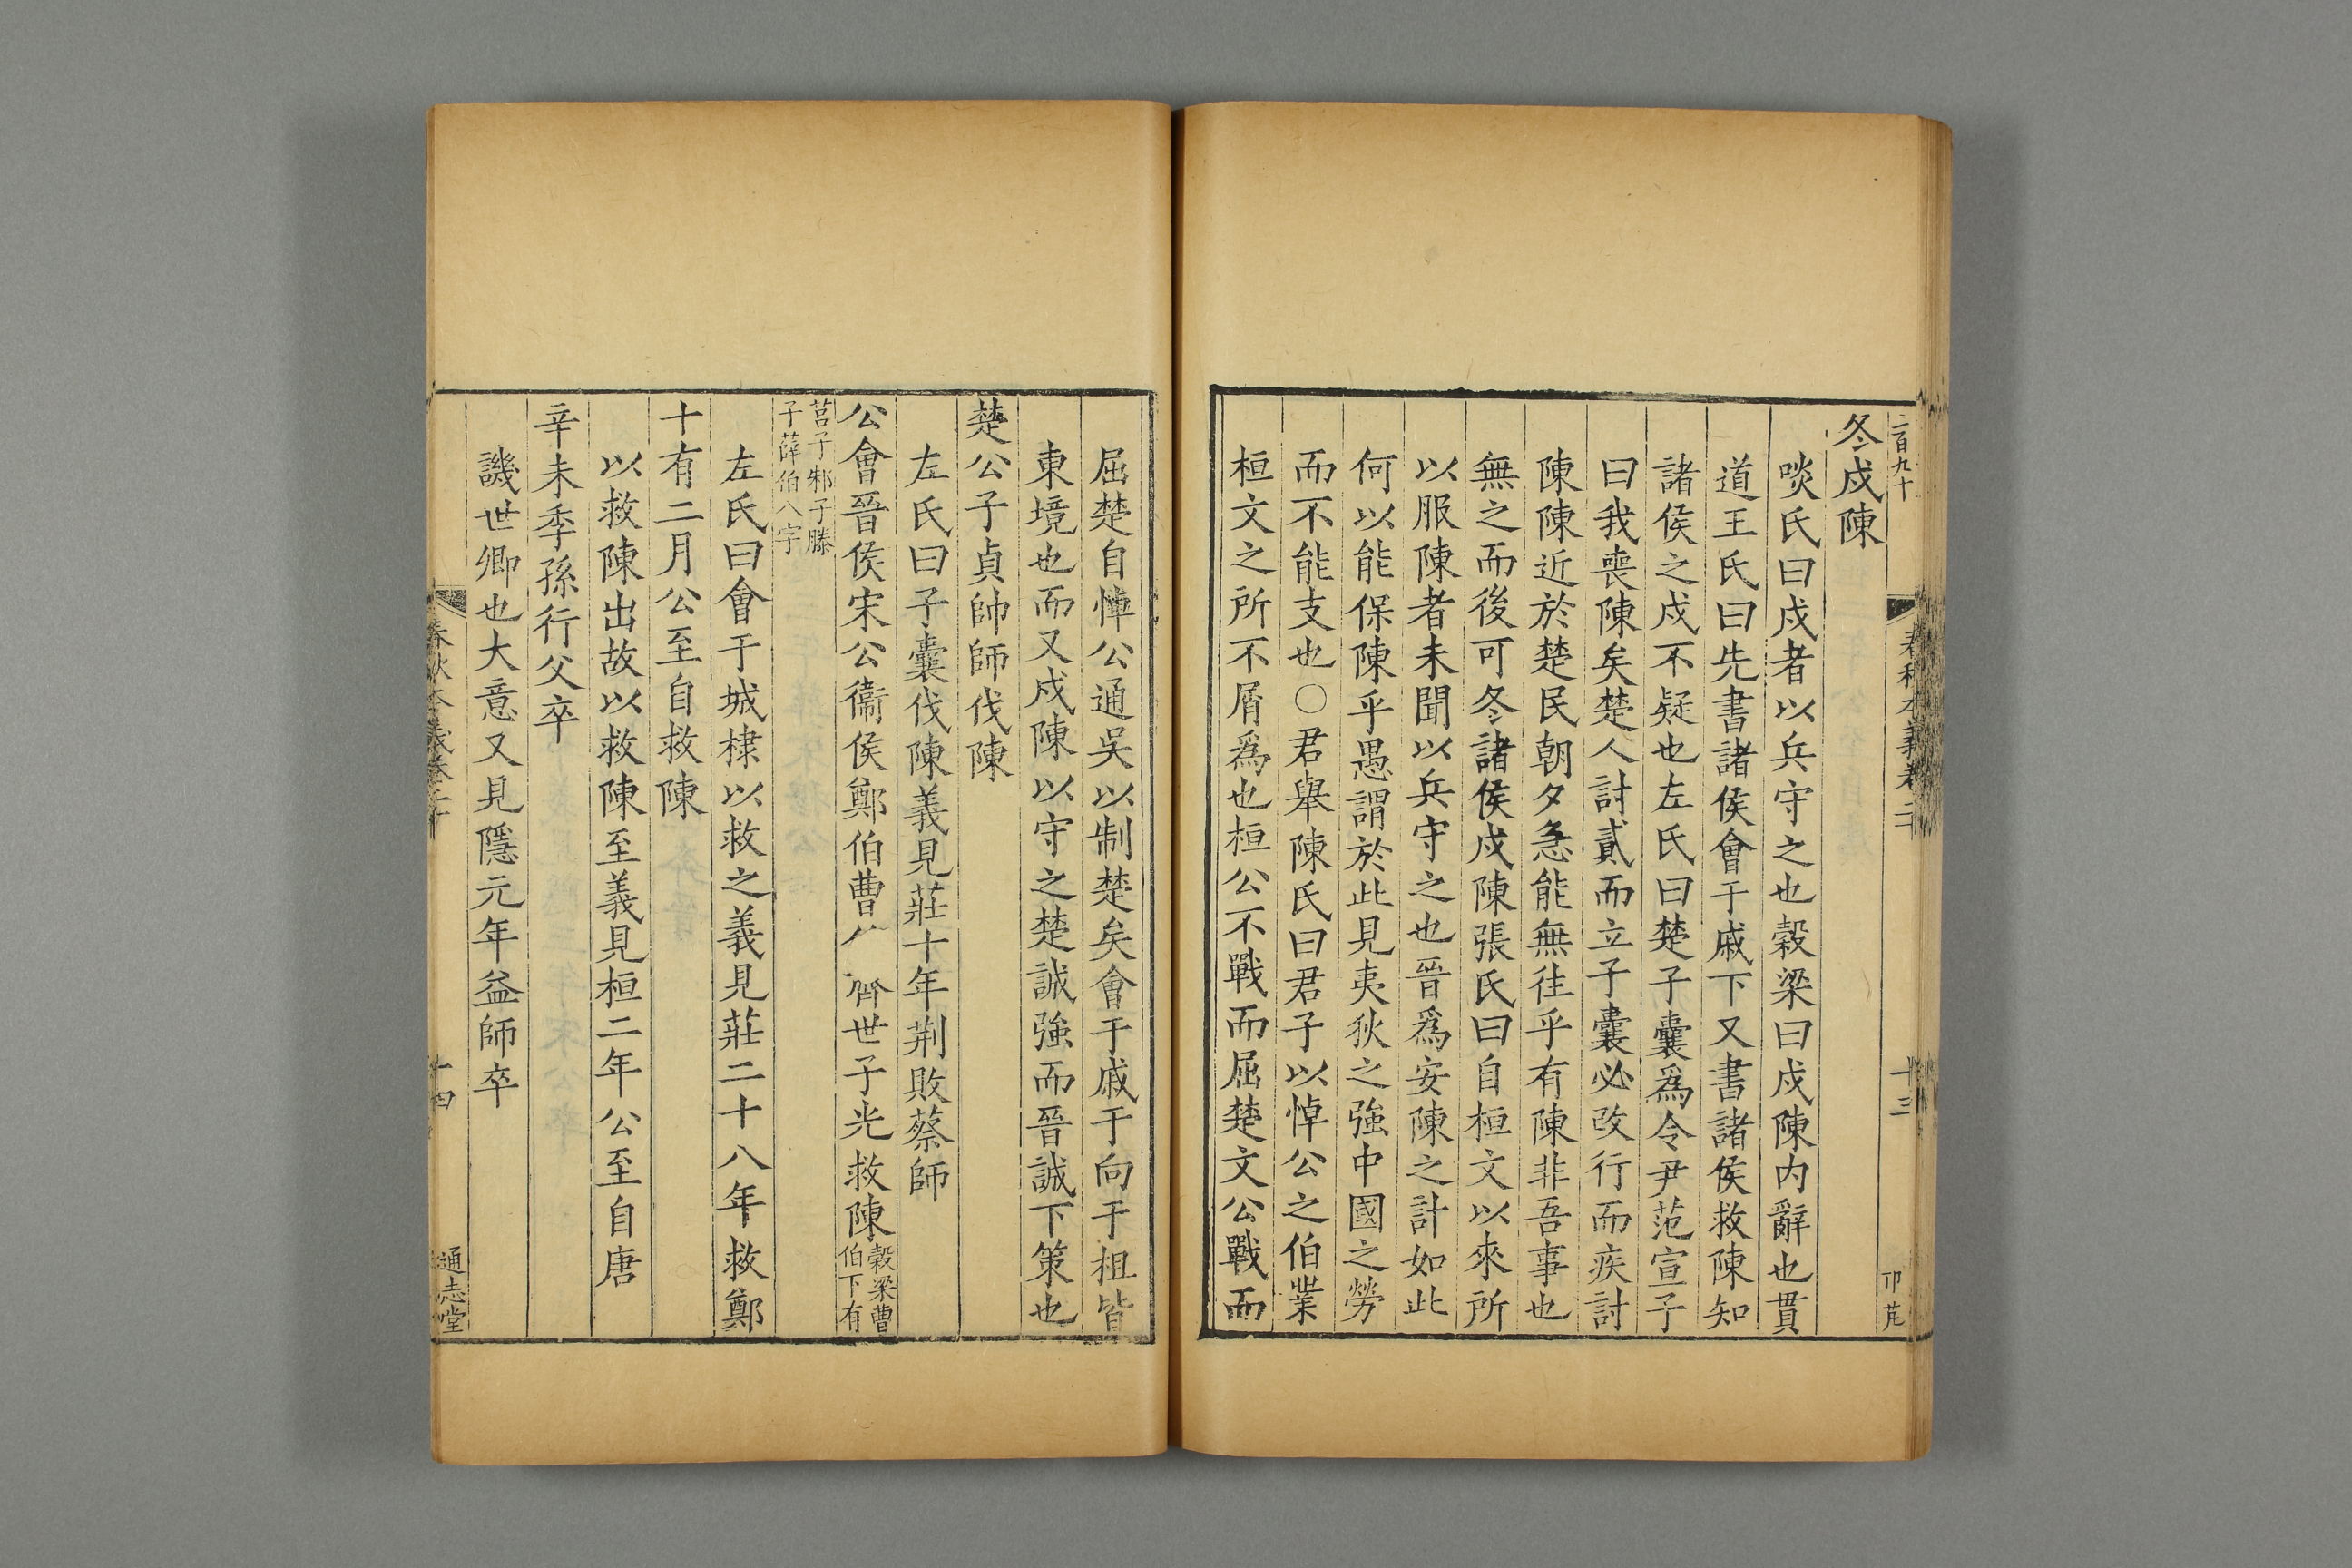 二百九十
冬戍陳
啖氏曰戍者以兵守之也穀梁曰戍陳内辭也貫
道王氏曰先書諸侯會于戚下又書諸侯救陳知
諸侯之戍不疑也左氏曰楚子囊爲令尹范宣子
曰我喪陳矣楚人討貳而立子囊必改行而疾討
陳陳近於楚民朝夕急能無往乎有陳非吾事也
無之而後可冬諸侯戍陳張氏曰自桓文以來所
以服陳者未聞以兵守之也晉爲安陳之計如此
何以能保陳乎愚謂於此見夷狄之強中國之勞
而不能支也○君舉陳氏曰君子以悼公之伯業
桓文之所不屑爲也桓公不戰而屈楚文公戰而
春秋本義卷二十
十三
屈楚自悼公通吳以制楚矣會于戚于向于柤皆
東境也而又戍陳以守之楚誠強而晉誠下策也
楚公子貞帥師伐陳
左氏曰子囊伐陳義見莊十年荆敗蔡師
公會晉侯宋公衞侯鄭伯曹 齊世子光救陳穀梁曹
伯下有
莒子邾子滕
子薛伯八字
左氏曰會于城棣以救之義見莊二十八年救鄭
十有二月公至自救陳
以救陳出故以救陳至義見桓二年公至自唐
辛未季孫行父卒
譏世卿也大意又見隱元年益師卒
春秋本義卷二十
十四
通志堂